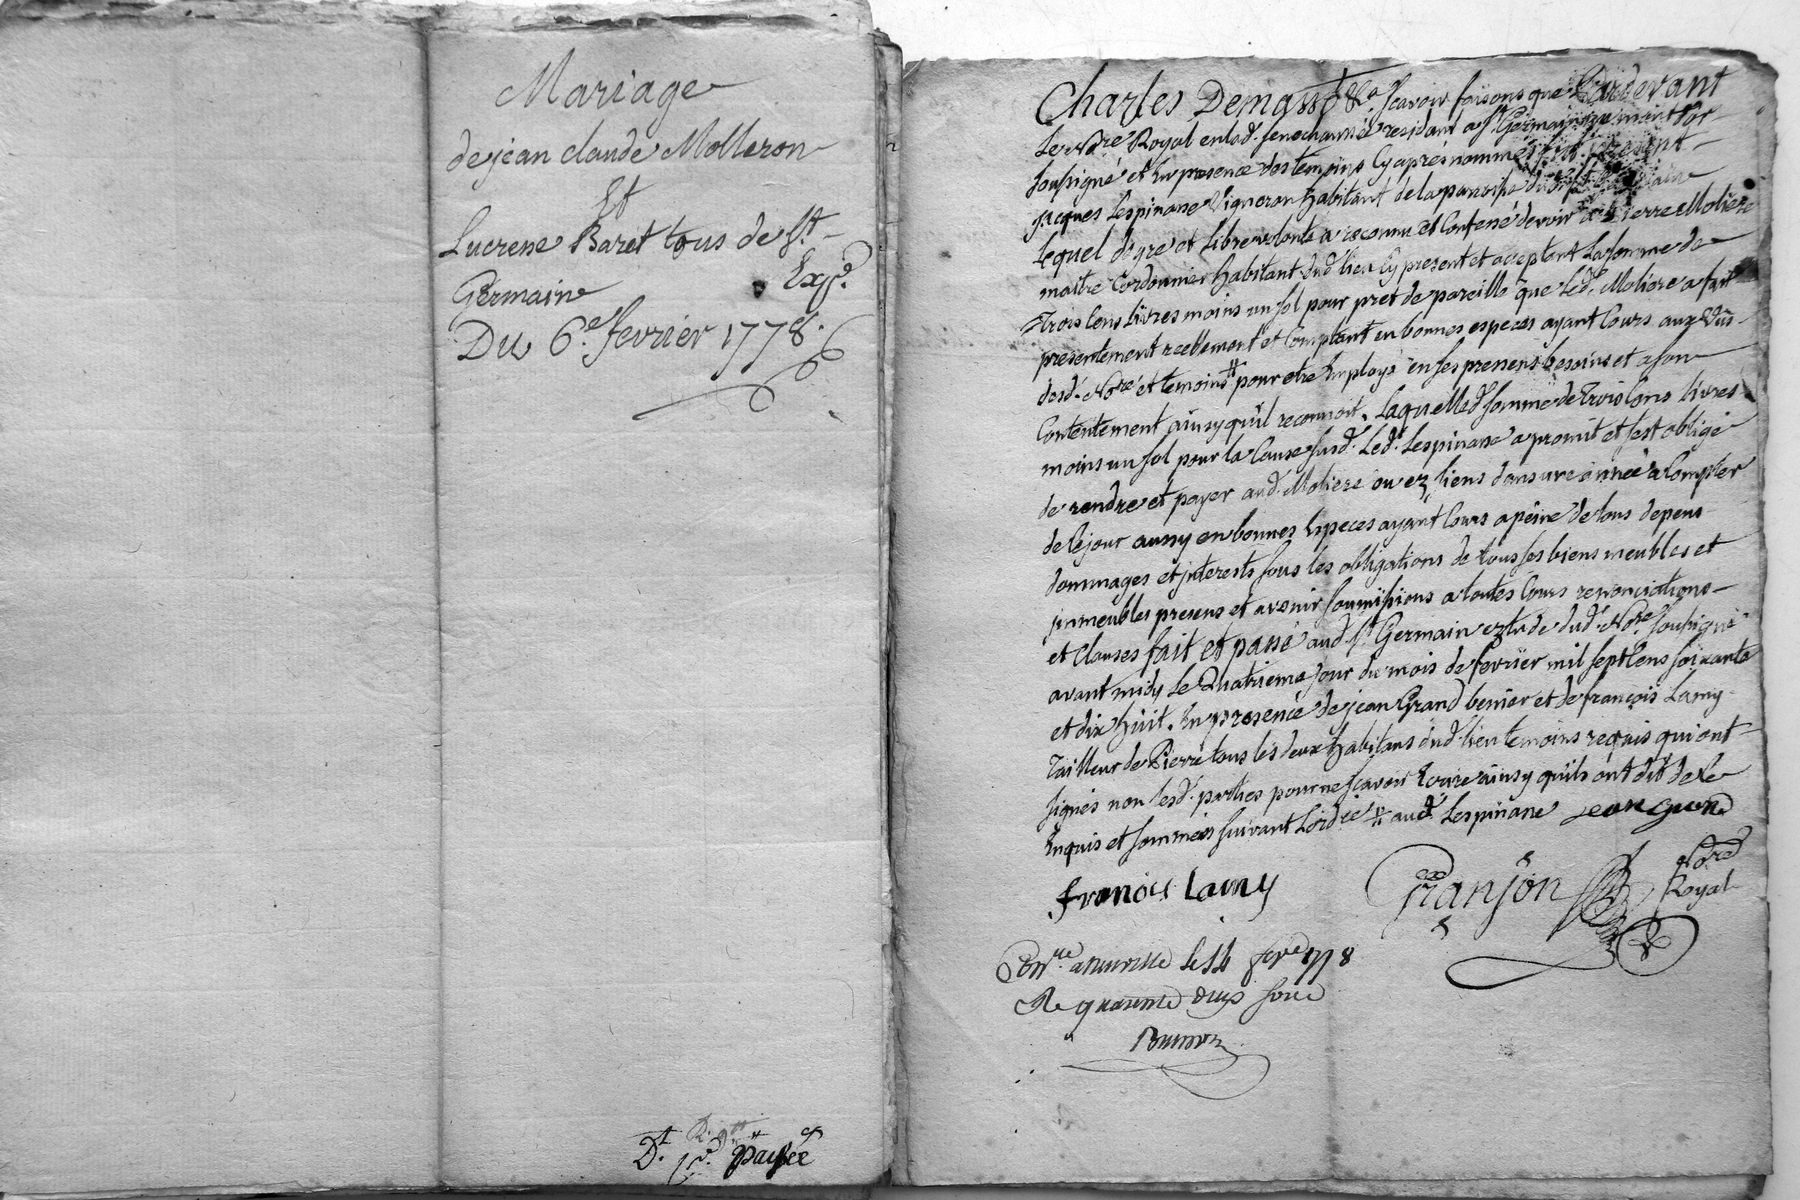 Mariage
de jean claude Molleron
Et
Lucrese Baret tous de St.
Germain
Expé.
Du 6e. fevrier 1778.
Dt. payée
Charles Demasso &a. scavoir faisons que Pardevant
Le Nore Royal en lad. senechaussée residant a St. Germain
soussigné et En presence des temoins Cy aprés nommés fut present
jacques Lespinasse Vigneron habitant de la paroisse dud. St.
Lequel de gré et libre volonté a reconnu et Confessé devoir a pierre Moliere
maitre Cordonnier habitant dud. lieu Cy present et acceptant La somme de
Trois Cens Livres moins un sol pour pret de pareille que led. Moliere a fait
presentement reellement et Comptant en bonnes especes ayant Cours aux Vûs
desd. Nore et temoins # pour etre Employé en ses pressens besoins et a son
Contentement ainsy qu'il reconnoit. Laquelle d. somme de Trois Cens livres
moins un sol pour la Cause susd. Led. Lespinasse a promit et s'est obligé
de rendre et payer aud. Moliere ou ez siens dans une année a Compter
de Ce jour aussy en bonnes Especes ayant Cours a peine de tous depens
dommages et jnterests sous les obligations de tous ses biens meubles et
jmmeubles presens et avenir soumissions a toutes Cours renonciations
et Clauses fait et passé aud. St. Germain eztude dud. Nore soussigné
avant midy Le Quatrieme jour du mois de fevrier mil sept Cens soixante
et dix huit. En presence de jean Grand benier et de françois Lamy
Tailleur de Pierre tous les deux habitans dud. lieu temoins requis qui ont
signés non lesd. parties pour ne scavoir Ecrire ainsy qu'ils ont dit de Ce
Enquis et sommées suivant L'ordce # aud. Lespinasse jean grand
francois Lamy
Granjon
Nore
Royal
Conlle a neuville Le 14 fevre 1778
Re quarante deux sous